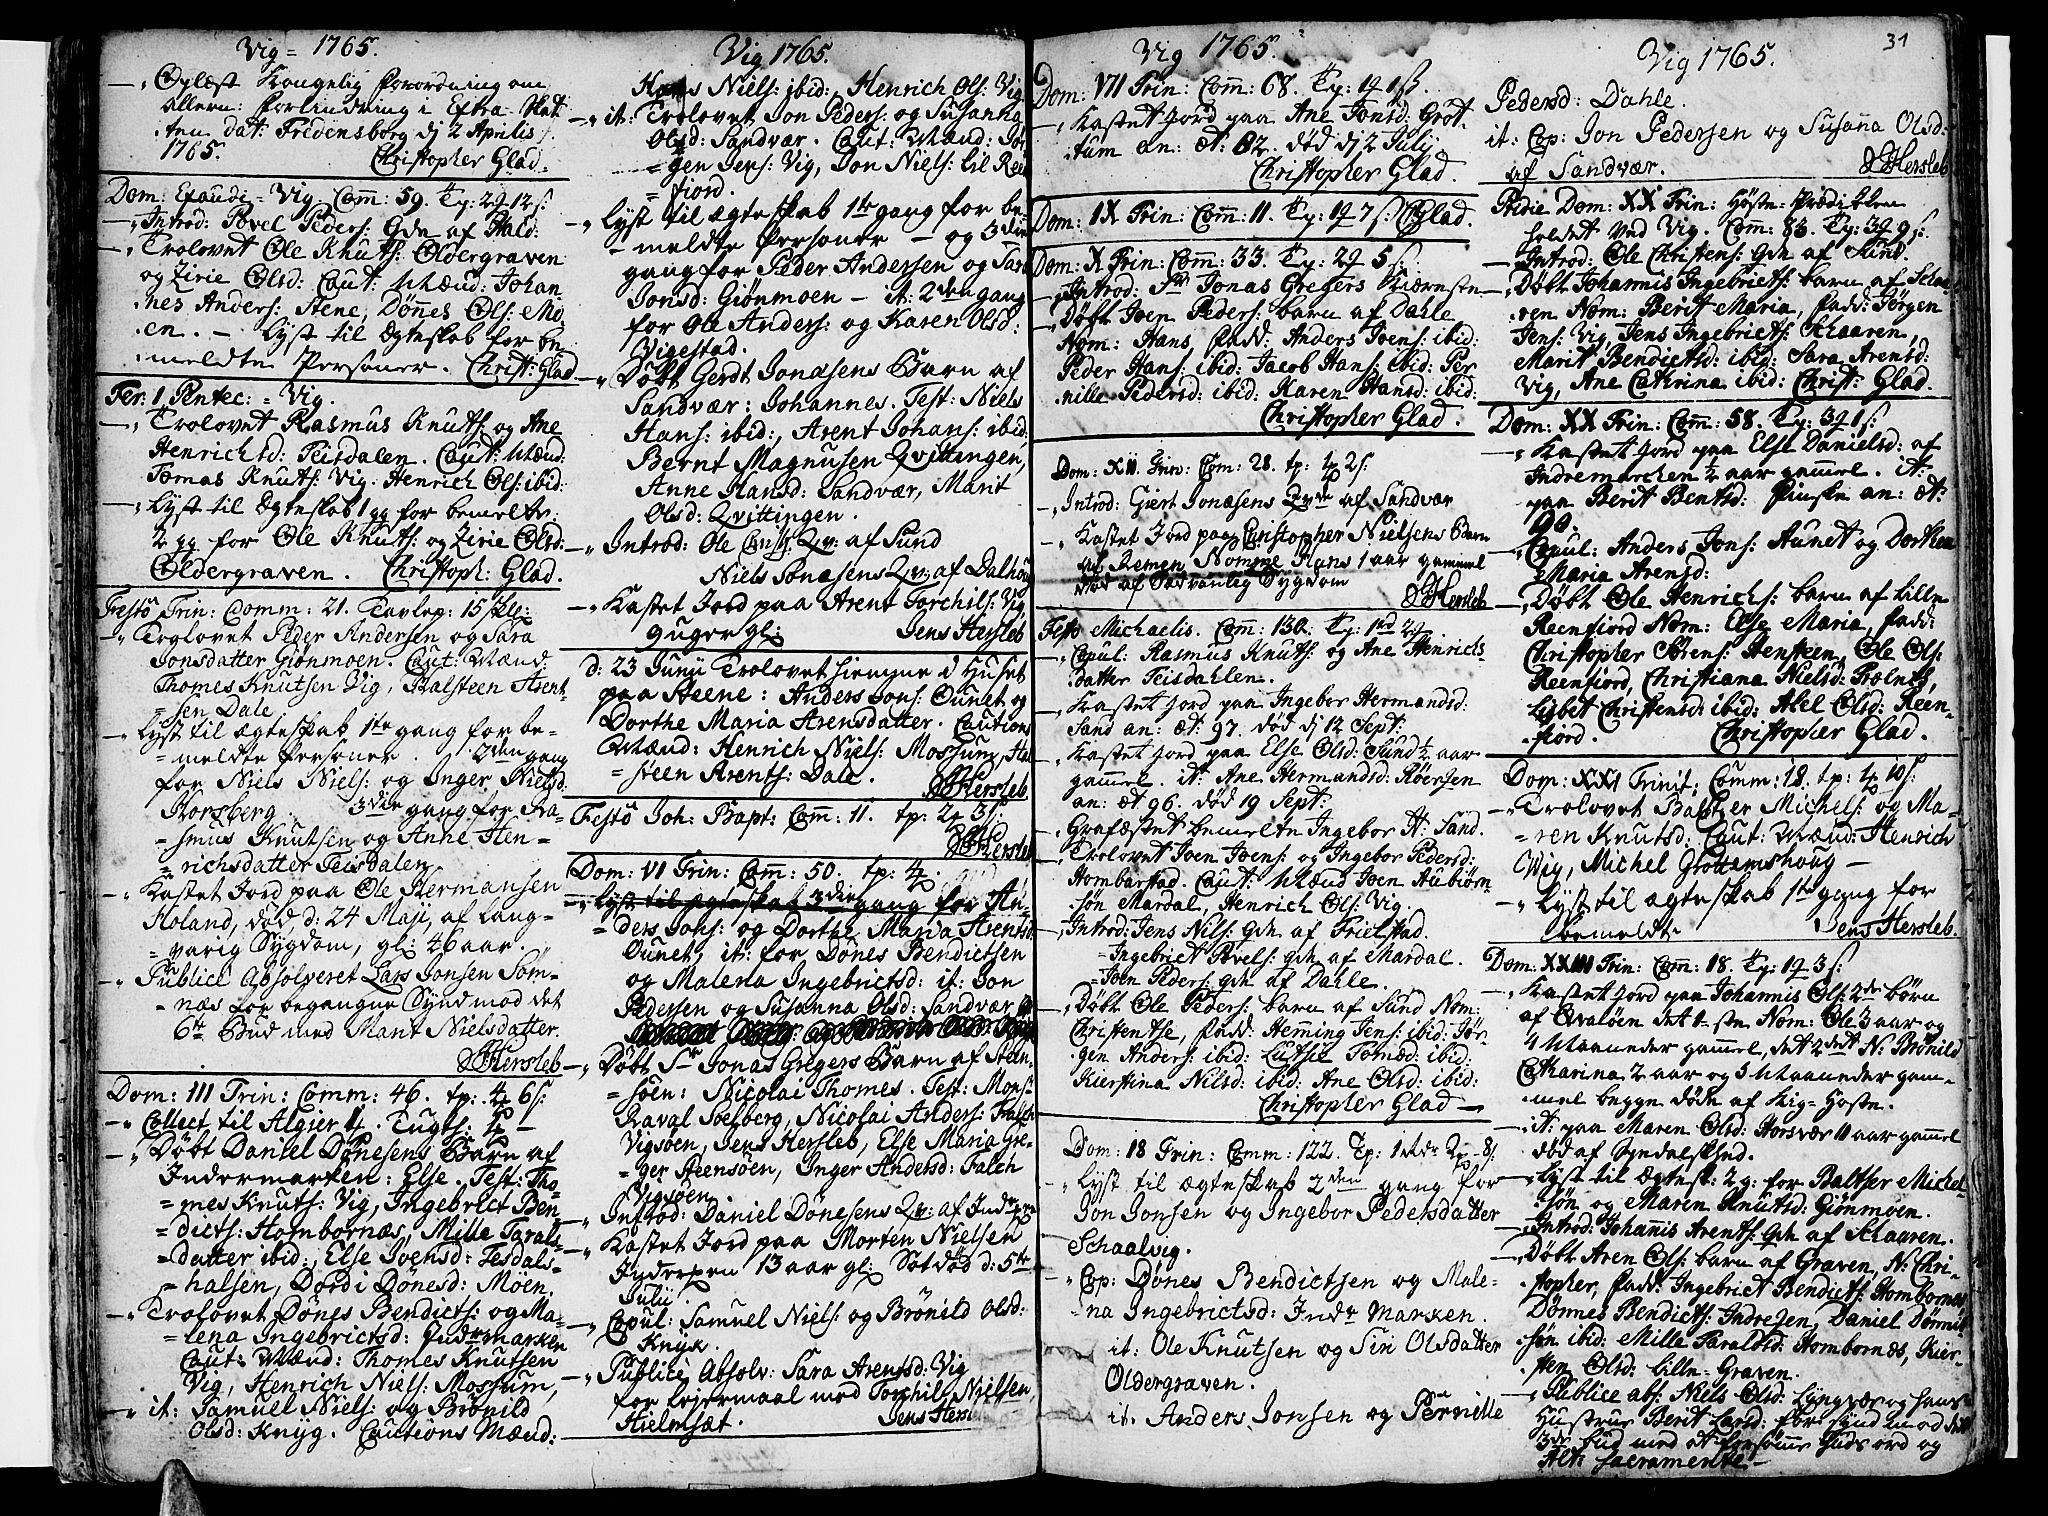 Vig = 1765.
Oplæst Kongelig Forordning om
Allern: Forlindring i Extra-Skat
ten dat: Fredensborg dj 2 Aprilis
1765.
Christopher Glad.
Dom: Exaudi = Vig Com̄: 59.
Introd: Povel Peders: Qde af Hald:
Trolovet Ole Knuts: Oldergraven
og Zirie Olsd: Caut: Mænd: Johan
nes Anders: Stene, Dønnes Ols: Mo
en. - Lyst til Ægteskab for be
meldte Personer. Christ: Glad
Fer: 1 Pentec: = Vig.
Trolovet Rasmus Knuts: og Ane
Henrichsd: Teisdalen. Caut: Mænd:
Tomas Knuts: Vig. Henrich Ols: ibid:
Lyst til Ægteskab 1 gg for bemelte:
2 gg for Ole Knuts: og Zirie Olsd:
Oldergraven. Christoph: Glad.
Festo Trin: Comm: 21. Tavlep: 15 skl:
Trolovet Peder Andersen og Sara
Jonsdatter Giønmoen. Caut: Mænd:
Thomes Knutsen Vig, Balsteen Arent
sen Dale
Lyst til ægteskab 1te gang for be-
meldte Personer. 2den gang
for Niels Niels: og Inger Nielsd:
Horsberg. 3die gang for Ra-
smus Knutsen og Anne Hen-
richsdatter Teisdalen
Kastet Jord paa Ole Hermansen
Holand, død d: 24 Maji, af lang-
varig Sygdom, gl: 46 aar.
Publicè Absolveret Lars Jonsen Søm-
næs for begangne Synd mod det
6te Bud med Marit Nielsdatter.
JHersleb
Dom: III Trin: Comm: 46. tp: 4 6 s:
Collect til Algier 4. Tugts: 4 -
Døbt Daniel Dønesens Barn af
Indermarken: Else. Test: Tho-
mes Knuts: Vig, Ingebrict Ben-
dicts: Hombornæs, Mille Tarals-
datter ibid: Else Ivensd: Tesdals-
halsen, Dordi Dønesd: Møen.
Trolovet Dønes Bendicts: og Ma-
lena Ingebrictsd: Indermarken
Caut: Mænd: Thomes Knutsen
Vig, Henrich Niels: Mossum,
it: Samuel Niels: og Brønild
Olsd: Knyg. Cautions Mænd:
Vig 1765.
Hans Niels: ibid:, Henrich Ols: Vig.
it: Trolovet Jon Peders: og Susanna
Olsd: Sandvær. Caut: Mænd: Jør
gen Jens: Vig, Jon Niels: lil Ree
fjord.
Lyst til ægteskab 1te gang for be-
meldte Personer - og 3die
gang for Peder Andersen og Sara
Jonsd: Giønmoen - it: 2den gang
for Ole Anders: og Karen Olsd:
Vigestad.
Døbt Gerdt Jonæsens Barn af
Sandvær: Johannes. Test: Niels
Hans: ibid:, Arent Johans: ibid:
Bernt Magnusen Qvittingen,
Anne Hansd: Sandvær, Marit
Olsd: Qvittingen.
Introd: Ole Christ: Qv: af Sund
Niels Jonæsens Qv: af Dalhoug
Kastet Jord paa Arent Torchils: Vig
9 uger gl: Jens Hersleb
d: 23 Junii Trolovet hiemme i Huset
paa Steene: Anders Jons: Ounet og
Dorthe Maria Arensdatter. Cautions
Mænd: Henrich Niels: Mossum, Hal
steen Arents: Dale.
JHersleb
Festo Joh: Bapt: Com̄: 11. tp: 2 3 s:
JHersleb
Dom: VI Trin: Com̄: 50. tp: 4.
Lyst til ægteskab 3die gang for An-
ders Johs: og Dorthe Maria Arentsd:
Ounet, it: for Dønes Bendictsen
og Malena Ingebrictsd: it: Jon
Pedersen og Susanna Olsd: Sandvær
Døbt Sr Jonas Gregers Barn af Steen-
søen: Nicolai Thomes. Test: Mons:
Raval Soelberg, Nicolai Anders: Falch
Vigsøen, Jens Hersleb, Else Maria Gre-
ger Steensøen, Inger Andersd: Falch
Vigsøen.
Introd: Daniel Dønesens Qv: af Inder
Kastet Jord paa Morten Nielsen
13 aar gl: Sotdød d: 5te
Julii
Copul: Samuel Niels: og Brønild Olsd:
Knyk.
Publicè Absolv: Sara Arensd: Vig
for lejermaal med Torchil Nielsen
Hielmsæt. Jens Hersleb
Vig 1765.
Dom: VII Trin: Com̄: 68.
Kastet Jord paa Ane Jonsd: Grot-
tum an: æt: 82. død dj 2 Julj
Christopher Glad.
Dom: IX Trin: Com̄: 11. CGlad.
Dom: X Trin: Com̄: 33.
Introd: Sr Jonas Gregers
Døbt Joen Peders: barn af Dahle
Nom: Hans, fadd: Anders Joens: ibid:
Peder Hans: ibid: Jacob Hans: ibid: Per
nille Pedersd: ibid: Karen Hansd: ibid:
Christopher Glad.
Dom: XII Trin: Com̄: 28. tp: 4 2 s:
Introd: Giert Jonæsens Qvde af Sandvær
Kastet Jord paa Christopher Nielsens Barn
af Remen Nomme Hans 1 aar gammel
død af Sædvanlig Sygdom
JHersleb
Festo Michaelis. Com̄: 130.
Copul: Rasmus Knuts: og Ane Henrichs-
datter Teisdahlen.
Kastet Jord paa Ingebor Hermansd:
Sand an: æt 97. død dj 12 Sept:
Kastet Jord paa Else Olsd: Sund ½ aar
gammel it: Ane Hermansd:
an: æt 96. død 19 Sept:
Grafæstet bemelte Ingebor H: Sand.
Trolovet Joen Joens: og Ingebor Pedersd:
Hombarstad. Caut: Mænd Joen Aubiørn
søn Mardal, Henrich Ols: Vig.
Introd: Jens Nils: qdh af Trielstad.
Ingebriet Povels: qdh af Mardal.
Joen Peders: qdh af Dahle.
Døbt Ole Peders: barn af Sund Nom:
Christense, fadd: Hemming Jens: ibid: Jør-
gen Anders: ibid: Lutsie Tomæd: ibid:
Kierstina Nilsd: ibid: Ane Olsd: ibid:
Christopher Glad -
Dom: 18 Trin: Comm: 122.
Lyst til ægteskab 2den gang for
Jon Jonsen og Ingebor Pedersdatter
Schaalvig.
Cop: Dønes Bendictsen og Male-
na Ingebrictsd: Indr Marken.
it: Ole Knutsen og Siri Olsdatter
Oldergraven.
it: Anders Jonsen og Pernille
31
Vig 1765.
Pedersd: Dahle.
it: Cop: Jon Pedersen og Susana Olsd:
af Sandvær. JHersleb
Pridie Dom: XX Trin: Høste-Prædiken
holdet ved Vig. Com̄: 83.
Introd: Ole Christens: qdh af Sund.
Døbt Johannis Ingebriets: barn af Schaa
ren Nom: Berit Maria, fadd: Jørgen
Jens: Vig, Jens Ingebriets: Schaaren,
Marit Bendictsd: ibid: Sara Arensd:
Vig, Ane Cathrina ibid: Christ: Glad.
Dom: XX Trin: Com̄: 58.
Kastet Jord paa Else Danielsd: af
Indremarchen ½ aar gammel. it:
paa Berit Bentsd: an: æt:
Copul: Anders Jons: Aunet og Dorthea
Maria Arensd:
Døbt Ole Henrichs: barn af Lille
Reenfiord Nom: Else Maria, fadd:
Christopher Sørens: Hensteen, Ole Ols:
Reenfiord, Christiana Nielsd: Prolnes,
Lisbet Christensd: ibid: Alel Olsd: Reen-
fiord. Christopher Glad.
Dom: XXI Trinit; Comm: 18. tp: 4 10 s:
Trolovet Baltzer Michels: og Ma-
ren Knutsd: Caut: Mænd: Henrich
Wig, Michel Grottemshoug -
Lyst til ægteskab 1te gang for
bemeldte Jens Hersleb.
Dom: XXIII Trin: Com̄: 18.
Kastet Jord paa Johannis Ols: 2de børn
af Qvaløen det 1ste Nom: Ole 3 aar og
4 Maaneder gammel, det 2det N: Brønild
Catharina 2 aar og 5 Maaneder gam-
mel begge døde af Kig-Hoste.
it: paa Maren Olsd: Horsvær 11 aar gammel
død af
Lyst til Ægtesk: 2 g: for Baltser Michel
søn og Maren Knutsd: Giønmoen.
Introd: Johannis Arents: qdh af Schaaren.
Døbt Aren Ols: barn af Graven, N: Chri-
stopher, fadd: Ingebriet Bendicts: Hombornes
Dønnes Bendicts: Indregen, Daniel Dønni
søn ibid: Mille Taralsd: Hombornæs, Kier-
sten Olsd: Lille-Graven.
Publice abs: Niels Olsd: Lyngvær og hans
Hustrue Berit Larsd: for synd mod det
3die bud med at forsømme Guds ord og
Alt: sacramente -